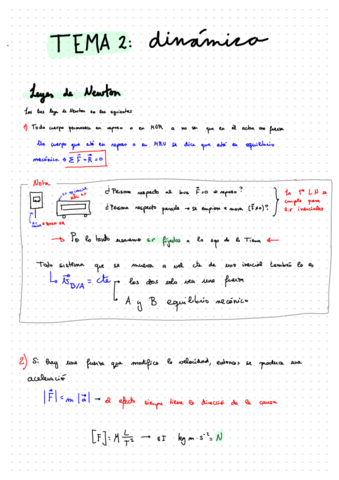 TEMA 2: dinámica
Leyes de Newton
Las tres leyes de Newton son las siguientes
1) Todo cuerpo permanece en reposo o en MRU a no ser que en él actúe una fuerza
Un cuerpo que está en reposo o en MRU se dice que está en equilibrio
mecánico ⇔ Σ F = R = 0
Nota
¿Persona respecto al bus F=0 → reposo?
¿Persona respecto parada → se empieza a mover (F≠0)?
La 1ª LN se
cumple para
s.r inerciales
→ Por lo tanto usaremos s.r fijados a los ejes de la Tierra ←
Todo sistema que se mueva a vel cte de uno inercial también lo es
↳ v B/A = cte
los dos solo vea una fuerza
A y B equilibrio mecánico
2) Si hay una fuerza que modifica la velocidad, entonces se produce una
aceleració
|F| = m |a| → el efecto siempre tiene la direcció de la causa
[F] = M L/T² → SI kg m · s⁻² = N